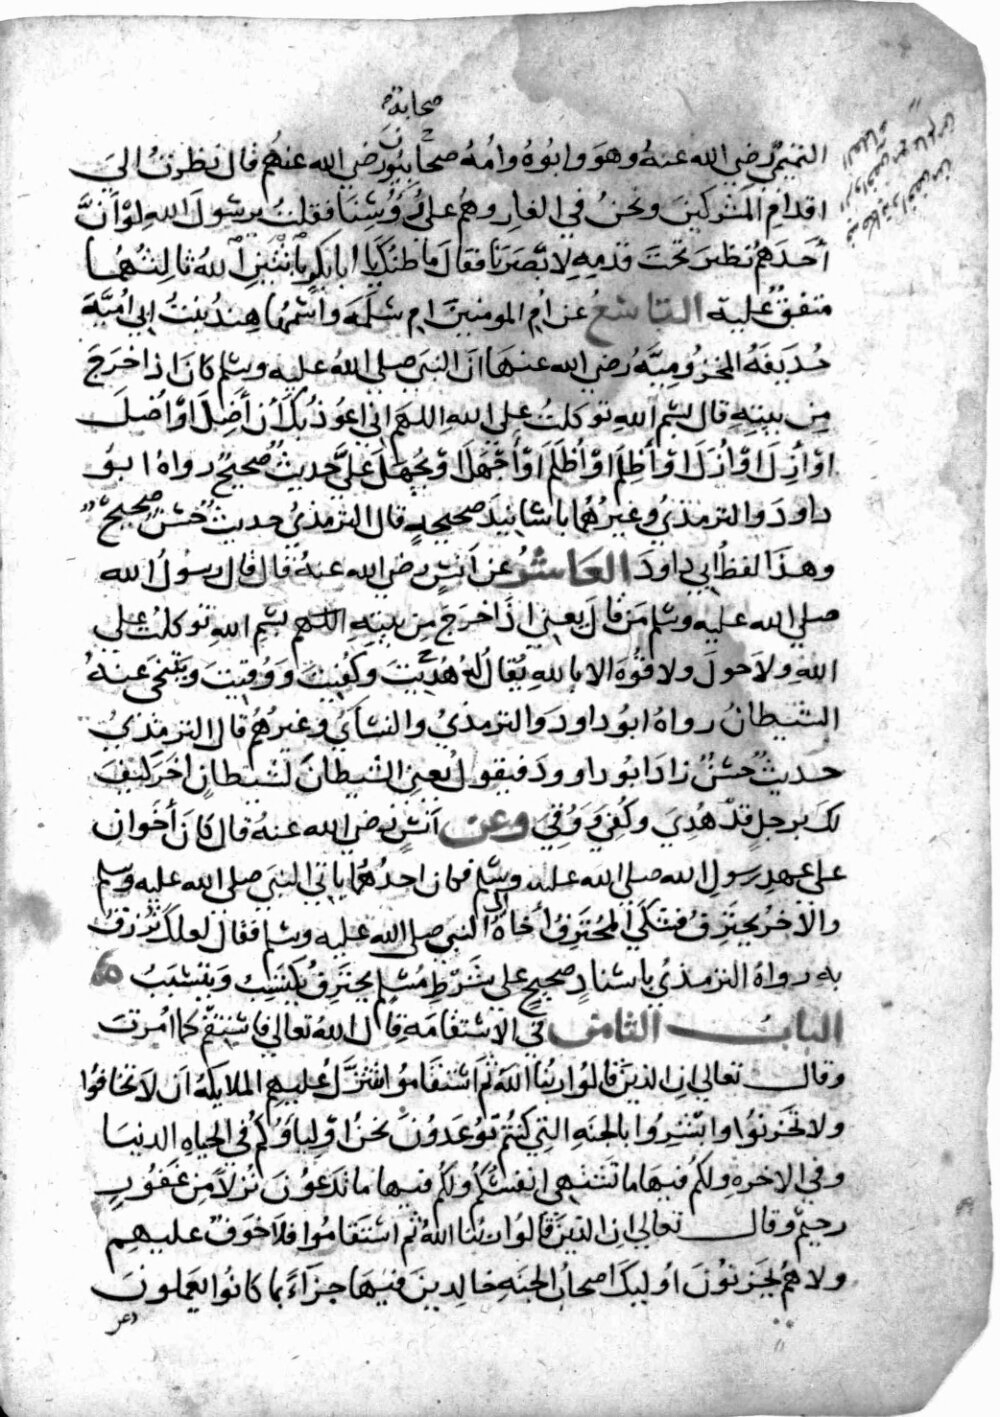 صحابة
التيمي رضي الله عنه وهو وابوه وامه صحابيون رضي الله عنهم قال نظرت الي
اقدام المشركين ونحن في الغار وهم على رؤسنا فقلت يرسول الله لو ان
احدهم نظر تحت قدميه لابصرنا فقال ما ظنك يا ابا بكر باثنين الله ثالثهما
متفق عليه التاسع عن ام المومنين ام سلمه واسمها هند بنت ابي اميّة
حذيفة المخزومية رضي الله عنها ان النبي صلى الله عليه وسلم كان اذا خرج
من بيته قال بسم الله توكلت على الله اللهم اني اعوذ بك أن أضل او أضل
او أزل او أزل او أظلم او أظلم او أجهل او يجهل عليّ حديث صحيح رواه ابو
داود والترمذي وغيرهما باسانيد صحيحه قال الترمذي حديث حسن صحيح
وهذا لفظ ابي داود العاشر عن انس رضي الله عنه قال قال رسول الله
صلي الله عليه وسلم من قال يعني اذا خرج من بيته اللهم بسم الله توكلت علي
الله ولا حول ولا قوه الا بالله يقال له هديت وكفيت ووقيت ويتنحى عنه
الشيطان رواه ابو داود والترمذي والنساي وغيرهم قال الترمذي
حديث حسن زاد ابو داوود فيقول يعني الشيطان لشيطان اخر كيف
لك برجل قد هدي وكفي ووقي وعن انس رضي الله عنه قال كان أخوان
على عهد رسول الله صلي الله عليه وسلم فكان احدهما ياتي النبي صلى الله عليه وسلم
والاخر يحترف فشكي المحترف أخاه الى النبي صلى الله عليه وسلم فقال لعلك ترزق
به رواه الترمذي باسناد صحيح على شرط مسلم يحترف يكتسب ويتسبب
الباب الثامن في الاستقامه قال الله تعالي فاستقم كما امرت
وقال تعالي ان الذين قالوا ربنا الله ثم استقاموا تتنزل عليهم الملايكه ان لا تخافوا
ولا تحزنوا وابشروا بالجنه التي كنتم توعدون نحن اولياؤكم في الحياه الدنيا
وفي الاخره ولكم فيها ما تشتهي انفسكم ولكم فيها ما تدعون نزلا من غفور
رحيم وقال تعالي ان الذين قالوا ربنا الله ثم استقاموا فلا خوف عليهم
ولا هم يحزنون اوليك اصحاب الجنه خالدين فيها جزاء بما كانوا يعملون